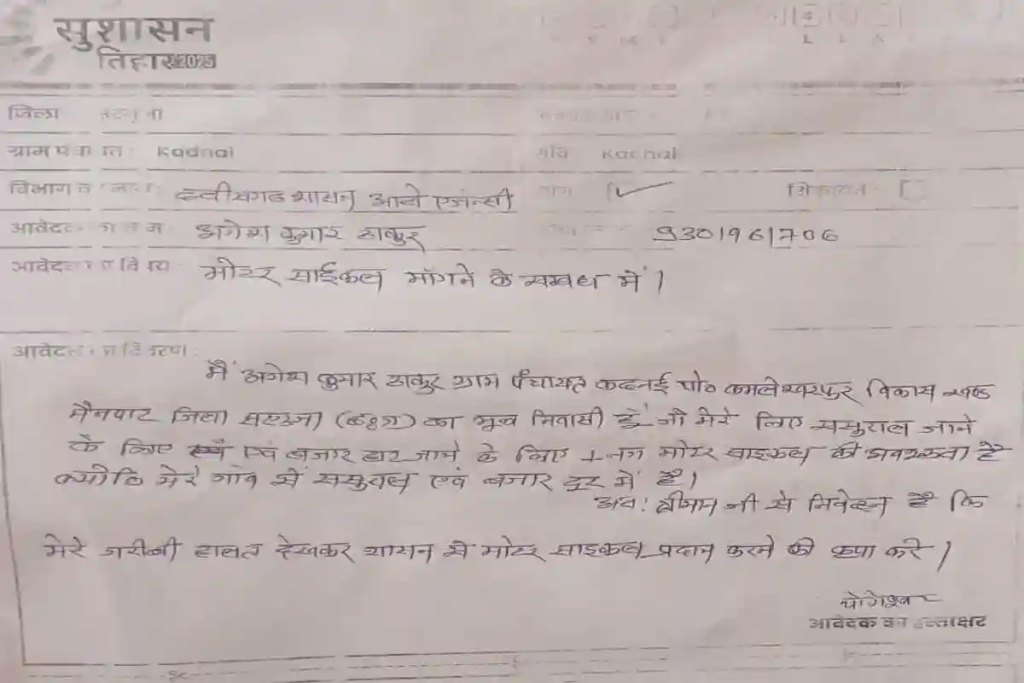 सुशासन
तिहार 2025
जिला
ग्राम पंचायत : Kadnai
विभाग छत्तीसगढ शासन आटो एजेन्सी मांग [✓] शिकायत [ ]
आवेदक का नाम कुमार ठाकुर 9301961706
आवेदन का विषय मोटर साईकल मांगने के सम्बध में।
आवेदन का विवरण :
मैं कुमार ठाकुर ग्राम पंचायत कदनई पो० कमलेश्वरपुर विकास खण्ड
मैनपाट जिला सरगुजा (छ०ग) का मुल निवासी हुँ जो मेरे लिए ससुराल जाने
के लिए एवं बजार हाट जाने के लिए 1 नग मोटर साइकल की अवश्कता है
क्योकि मेरे गांव से ससुराल एवं बजार दुर में है।
अत: श्रीमान जी से निवेदन है कि
मेरे गरीबी हालत देखकर शासन से मोटर साइकल प्रदान करने की कृपा करे।
योगेश्वर
आवेदक का हस्ताक्षर